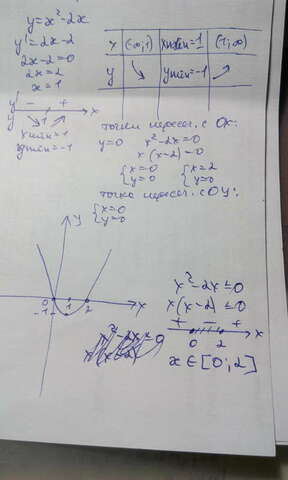 y=x²-2x
y'=2x-2
2x-2=0
2x=2
x=1
y' - +
y 1 x
xmin=1
ymin=-1
x (-∞;1) xmin=1 (1;∞)
y ymin=-1
точки перес. с Ox:
y=0 x²-2x=0
x(x-2)=0
{x=0 {x=2
{y=0 {y=0
точка перес. с Oy:
{x=0
{y=0
y
0 1 2 x
-1
x²-2x≤0
x(x-2)≤0
+ - +
0 2 x
x∈[0;2]